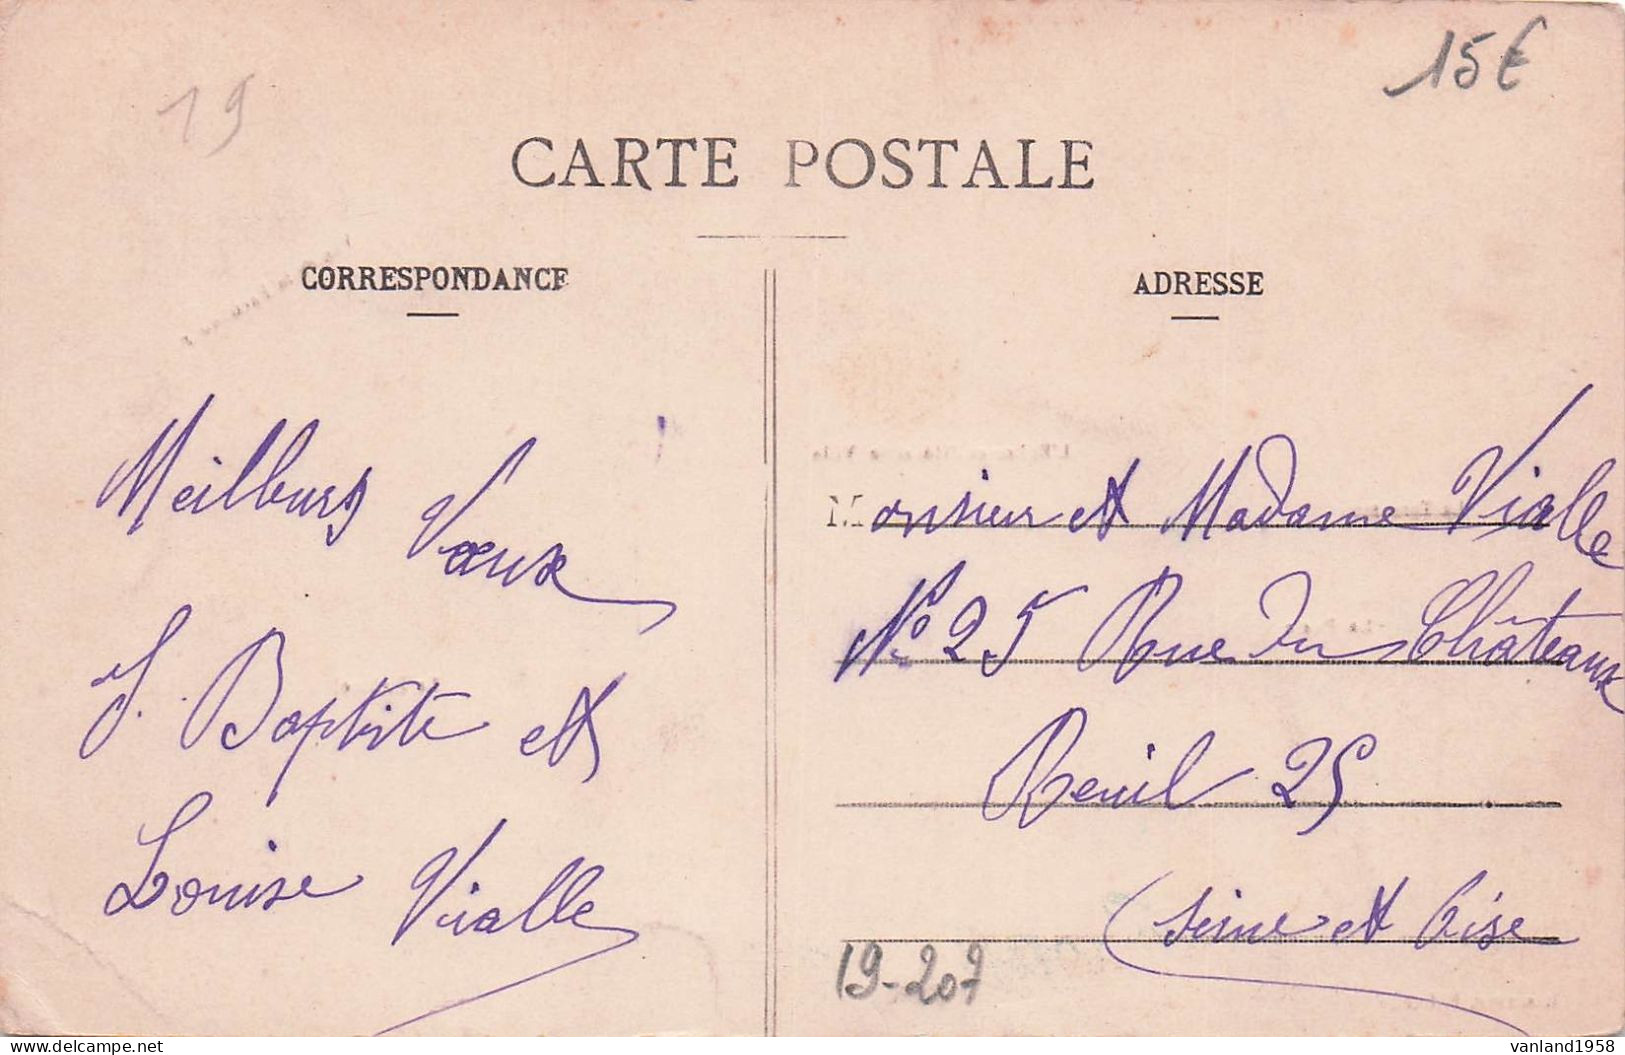 19
15€
CARTE POSTALE
CORRESPONDANCE
ADRESSE
Meilleurs Vœux
J. Baptiste et
Louise Vialle
Monsieur et Madame Vialle
N° 25 Rue Du Châteaux
Reuil 25
(Seine et Oise
19-207
vanland1958